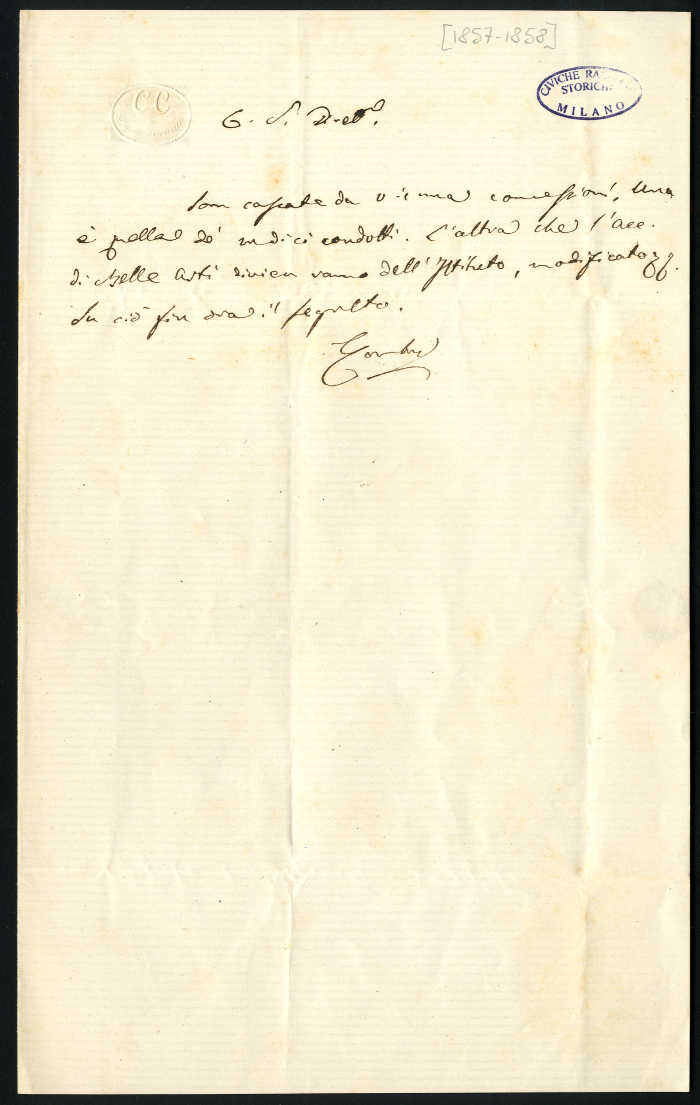 [1857-1858]
CC
CIVICHE RA
STORICHE
MILANO
C. S. Dirett.
Som cascate da vicina concessioni. Una
è quella de' medici condotti. L'altra che l'Acc.
di Belle Arti divien ramo dell'Istituto, modificato
Su ciò fin ora il segreto.